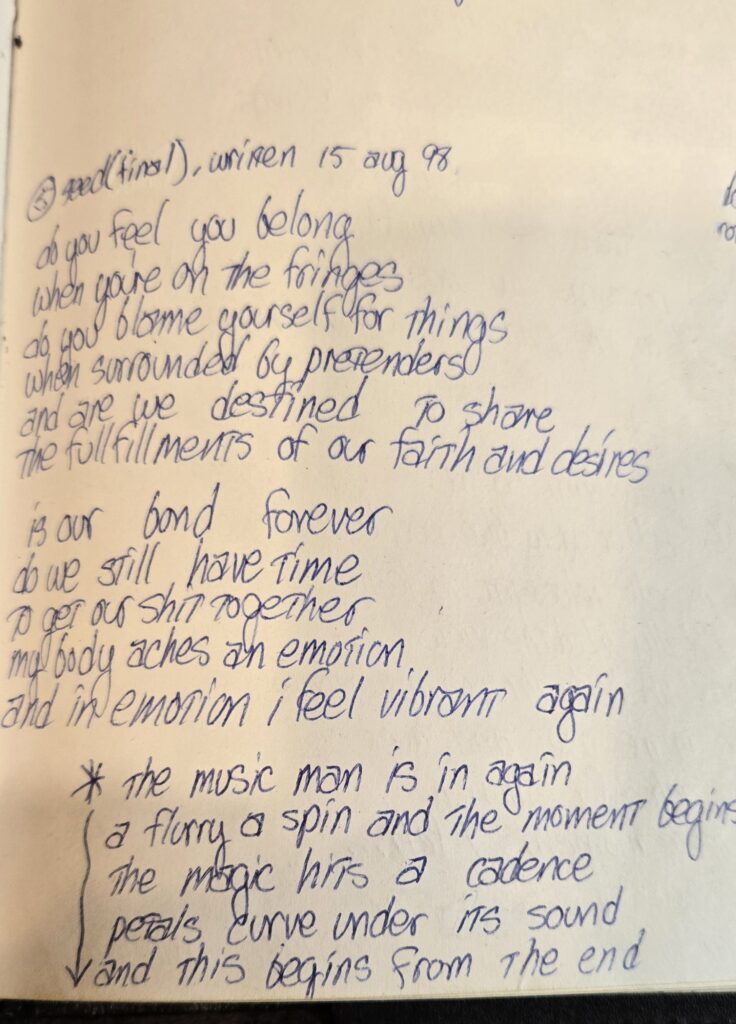 ⑤ seed(final), writen 15 aug 98
do you feel you belong
when you're on the fringes
do you blame yourself for things
when surrounded by pretenders
and are we destined to share
the fullfillments of our faith and desires
is our bond forever
do we still have time
to get our shit together
my body aches an emotion
and in emotion i feel vibrant again
* the music man is in again
a flurry a spin and the moment begins
the magic hits a cadence
petals curve under its sound
and this begins from the end